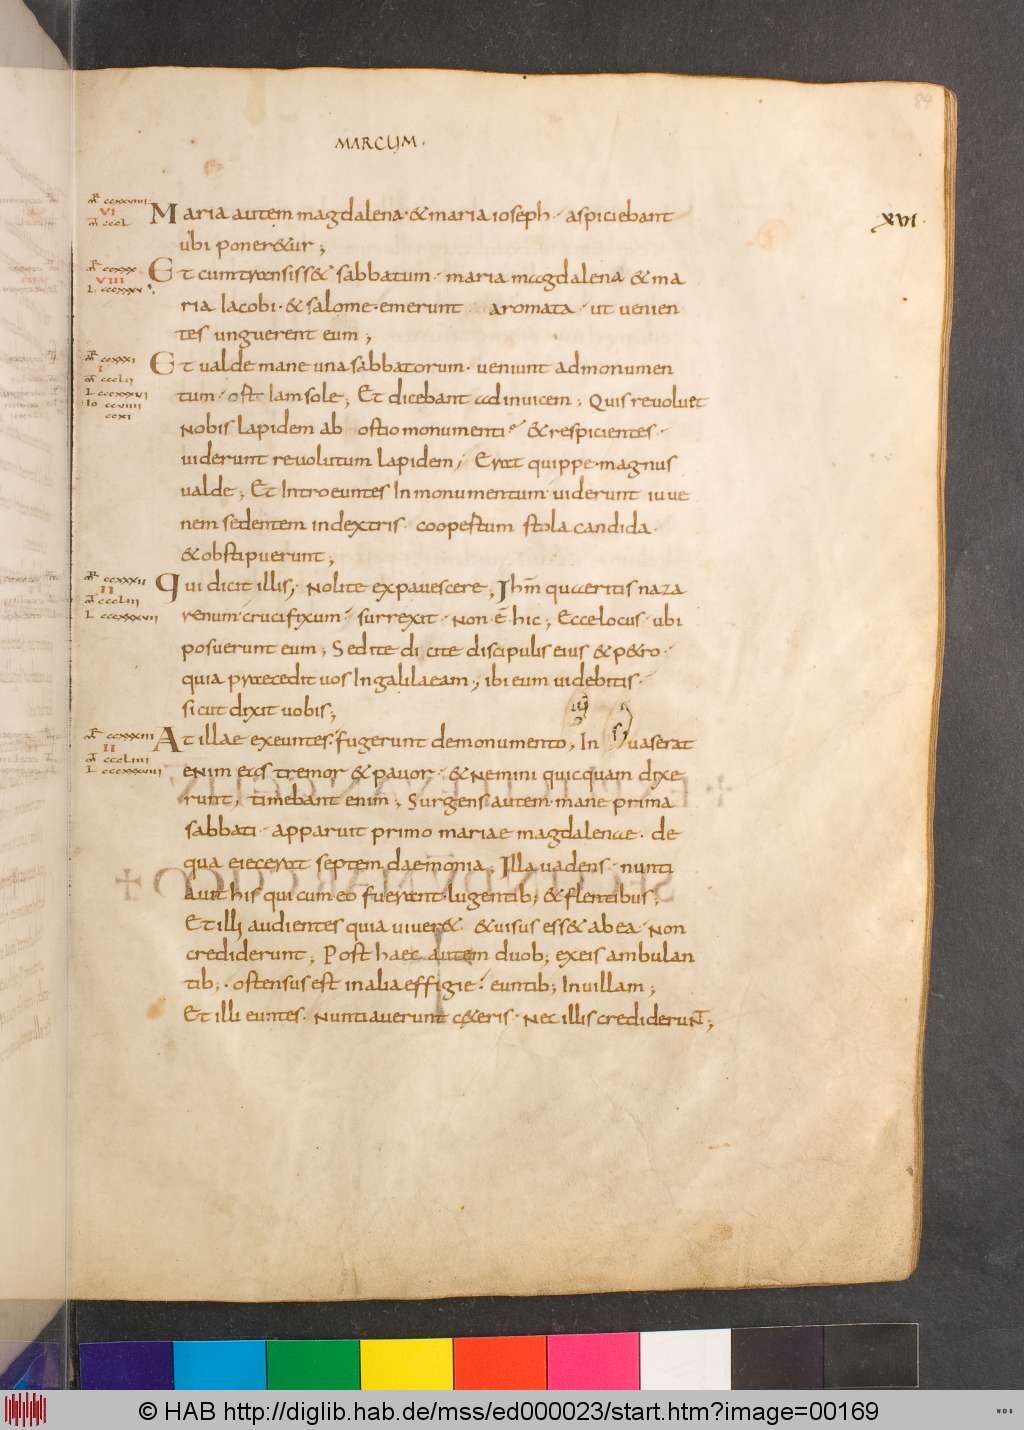 84
MARCUM.
XVI.
mR ccxxviiii
VI
mt cccL
Maria autem magdalena · & maria ioseph · aspiciebant
ubi poner&ur ;
mR ccxxx
VIII
L cccxxxv
Et cumtransiss& sabbatum · maria magdalena & ma
ria Iacobi · & salome · emerunt aromata · ut venien
tes unguerent eum ;
mR ccxxxi
I
mt cccLii
L cccxxxvi
Io ccviiii
ccxi
Et valde mane una sabbatorum · veniunt admonumen
tum · ost Iam sole ; Et dicebant adinvicem ; Quis revolvet
Nobis Lapidem ab ostio monumenti & respicientes ·
viderunt revolutum Lapidem ; Erat quippe · magnus
valde ; Et Introeuntes In monumentum viderunt iuve
nem sedentem indextris · coopertum stola candida ·
& obstipuerunt ;
mR ccxxxii
II
mt cccLiii
L cccxxxvii
Qui dicit illis ; Nolite expavescere ; Ihm quaeritis naza
renum crucifixum · surrexit · Non ē hic ; Ecce locus · ubi
posuerunt eum ; Sed ite dicite discipulis eius & p&ro ·
quia praecedit vos In galilaeam ; ibi eum videbitis ·
sicut dixit vobis ;
mR ccxxxiii
II
mt cccLiiii
L cccxxxviii
At illae exeuntes · fugerunt demonumento ; In vaserat
enim eas tremor & pavor · & Nemini quicquam dixe
runt ; timebant enim ; Surgens autem mane prima
sabbati · apparuit primo mariae magdalenae · de
qua eiecerat septem daemonia ; Illa vadens · nunti
avit his qui cum eo fuerant · lugentib; & flentibus ;
Et illi audientes quia viver& · & visus ess& ab ea · Non
crediderunt ; Post haec autem duob; ex eis ambulan
tib; · ostensus est in alia effigie · euntib; In villam ;
Et illi euntes · Nuntiaverunt c&eris · Nec illis crediderunt ;
© HAB http://diglib.hab.de/mss/ed000023/start.htm?image=00169